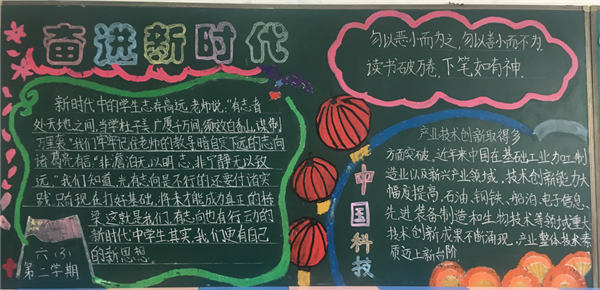 奋进新时代
新时代中的学生志存高远,老师说:"有志者
处天地之间,当学杜子美,广厦千万间,须效白香山,谋制
万里裘"我们牢牢记住老师的教导暗自定下远的志向
诸葛亮有云"非淡泊无以明志,非宁静无以致
远。"我们知道,光有志向是不行的还要付诸实
践,只有现在打好基础,将来才能成为真正的栋
梁,这就是我们,有志向也有行动的
新时代中学生其实,我们更有自己
的新思想。
六(3)
第二学期
勿以恶小而为之,勿以善小而不为
读书破万卷,下笔如有神.
中国科技
产业技术创新取得多
方面突破,近年来中国在基础工业加工制
造业以及新兴产业领域,技术创新能力大
幅度提高,石油,钢铁,船泊,电子信息,
先进装备制造和生物技术等领域重大
技术创新成果不断涌现,产业整体技术素
质迈上新台阶